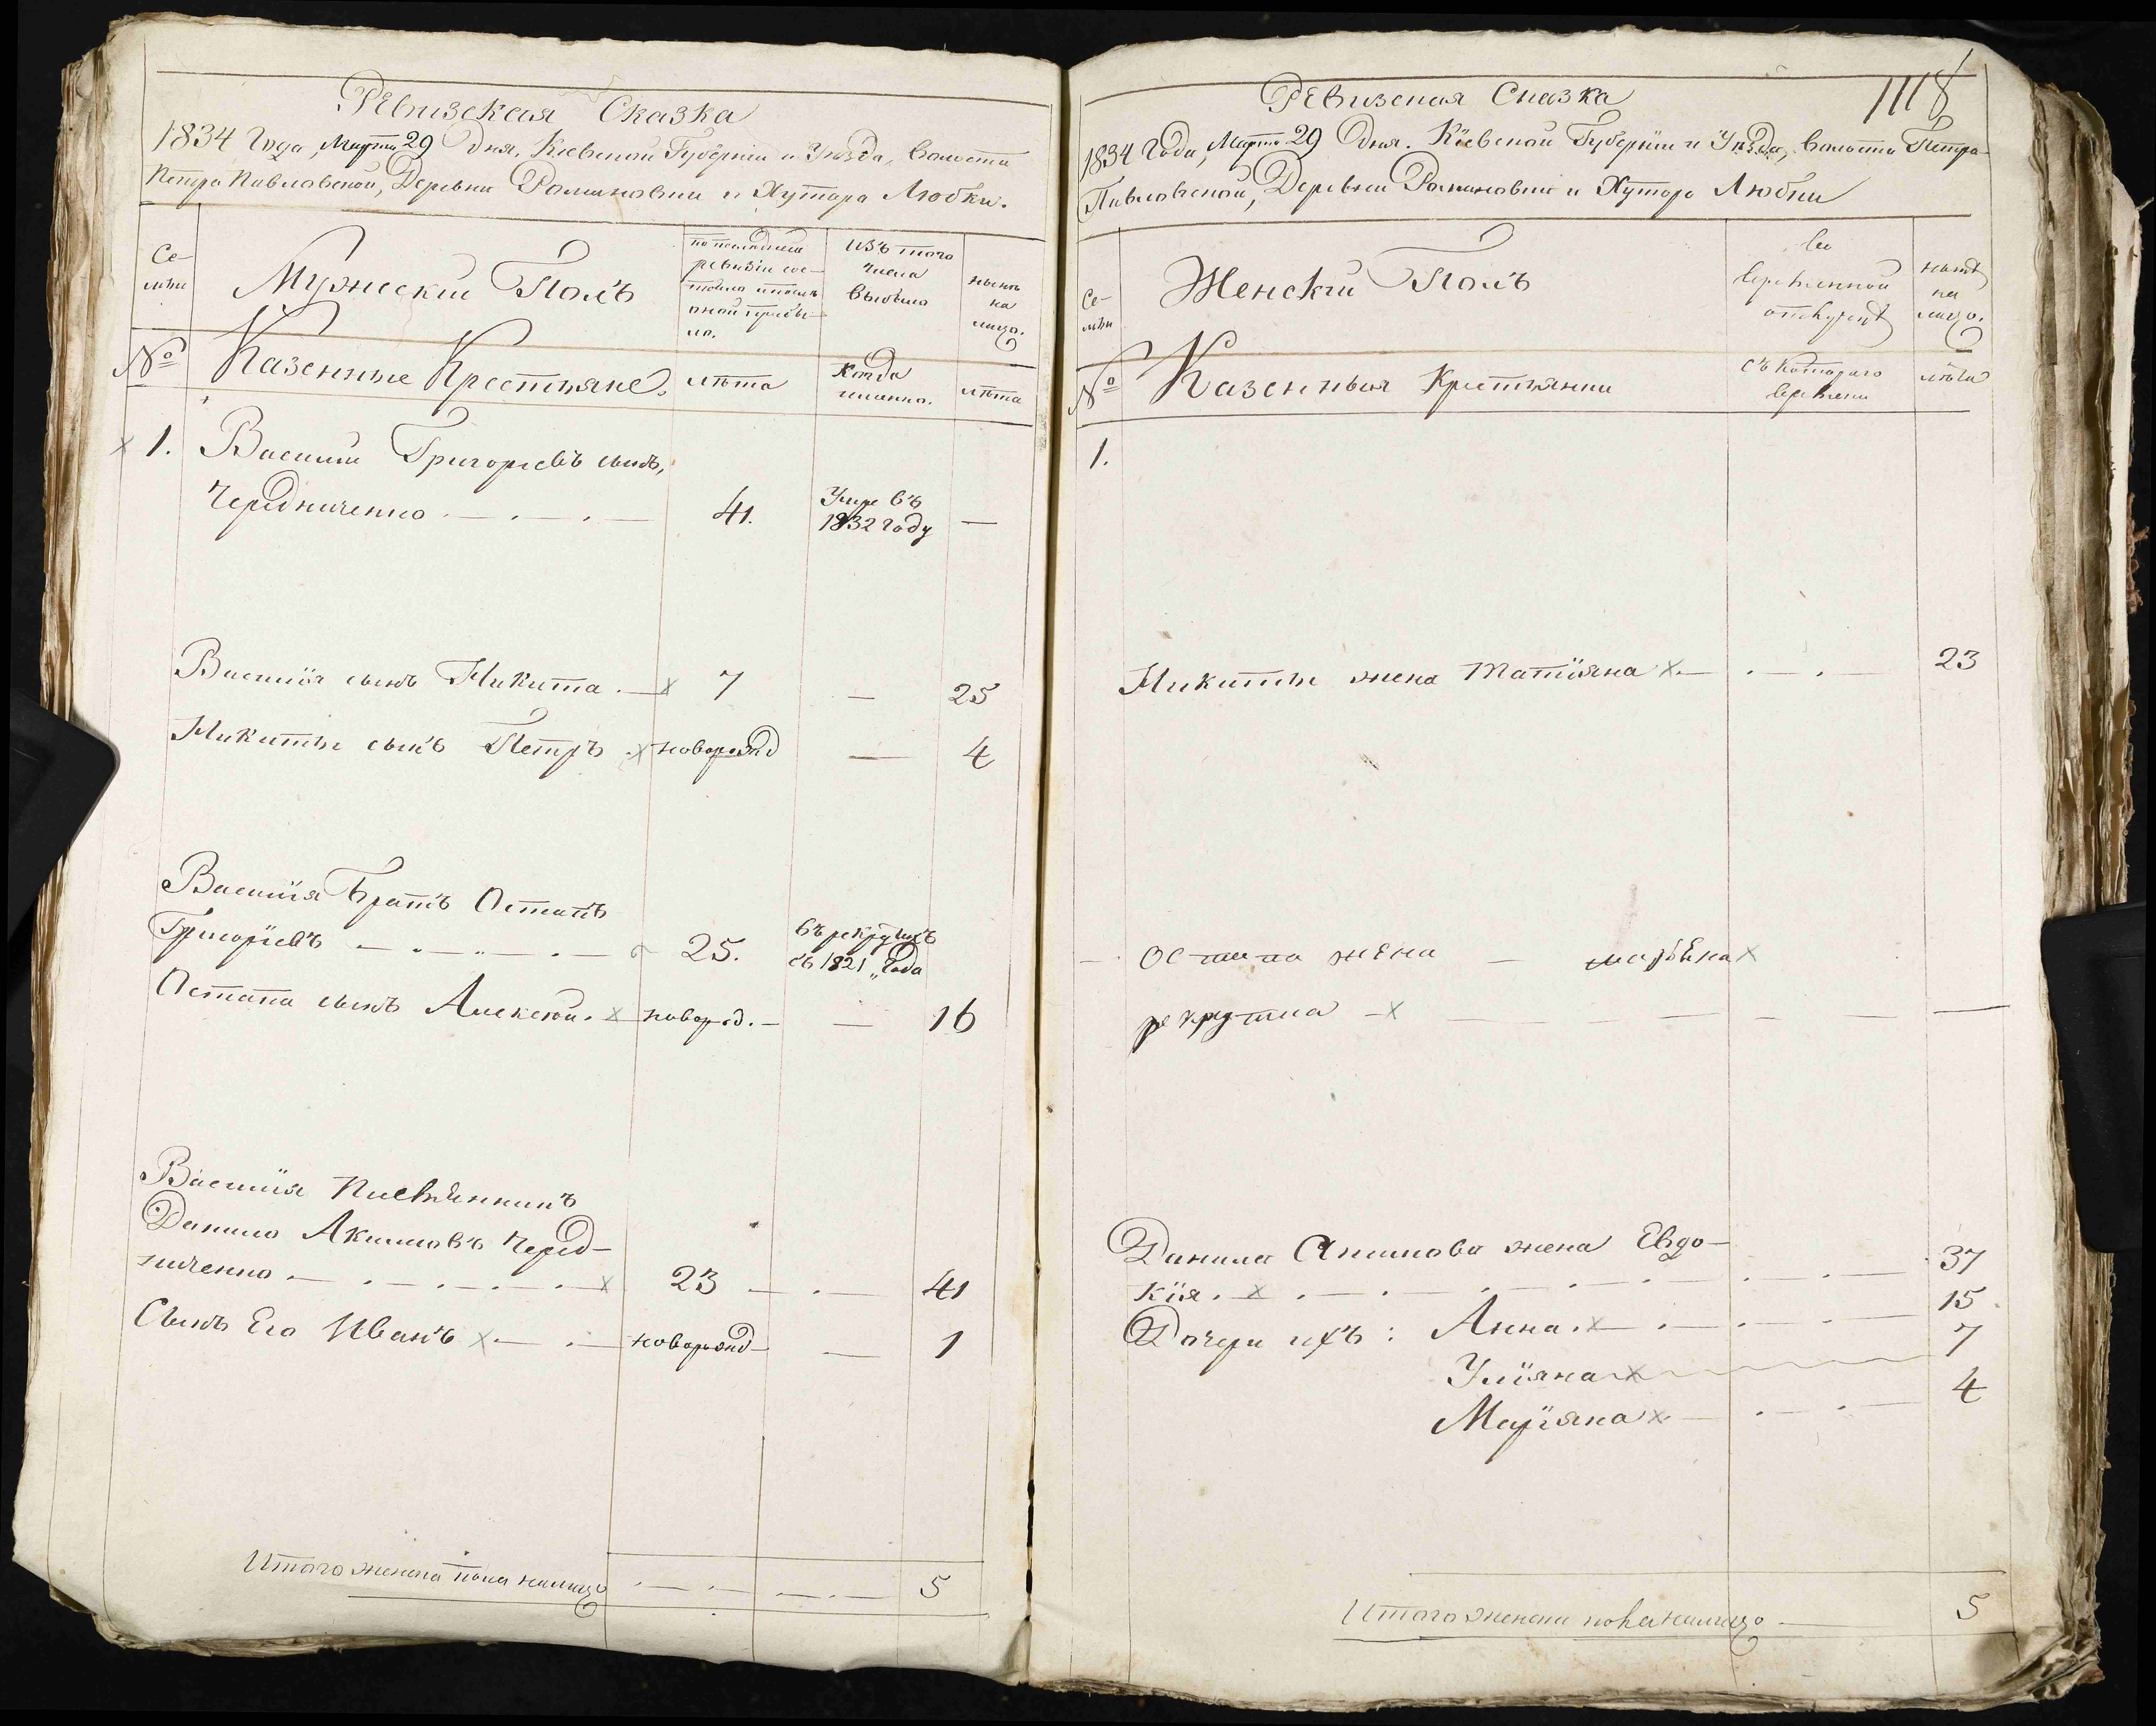 Ревизская Сказка
1834 Года, Марта 29 Дня, Кіевской Губерніи и Уѣзда, волости
Петро Павловской, Деревни Романовки и Хутора Любки.
Се-
мьи
Мужескии Полъ
по последней
ревизіи сос-
тояло и после
оной прибы-
ло.
Изъ того
числа
выбыло
ныне
на
лицо.
№
Казенные Крестьяне.
лѣта
Когда
именно.
лѣта
1. Василий Григориевъ сынъ,
Чередниченко 41. Умре въ
1832 году —
Василія сынъ Никита 7 — 25
Никиты сынъ Петръ новорожд — 4
Василія Братъ Остапъ
Григоріевъ 25. въ рекрутахъ
съ 1821 года
Остапа сынъ Алексей. новорожд. — 16
Василія Племянникъ
Данило Акимовъ Черед-
ниченко 23 — 41
Сынъ Его Иванъ новорожд — 1
Итого пола налицо 5
1118
Ревизская Сказка
1834 Года, Марта 29 Дня. Кіевской Губерніи и Уѣзда, волости Петро-
Павловской, Деревни Романовки и Хутора Любки
Се-
мьи
Женскій Полъ
во
временной
отлучкѣ
нынѣ
на
лицо.
№
Казенныя Крестьянки
съ Котораго
времени
лѣта
1.
Никиты жена Татіяна 23
Остапа жена — марьяна
рекрутка —
Данила Акимова жена Евдо-
кія. 37
Дочери ихъ: Анна 15
Уліяна 7
Маріяна 4
Итого женска пола налицо 5